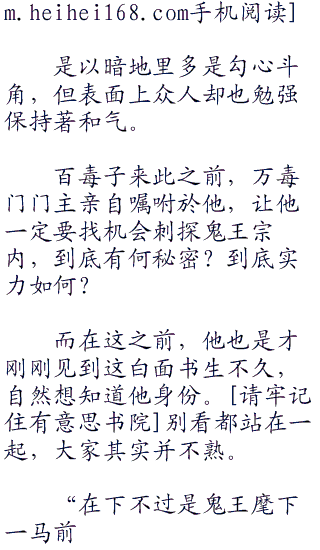 m.heihei168.com手机阅读]
是以暗地里多是勾心斗
角，但表面上众人却也勉强
保持著和气。
百毒子来此之前，万毒
门门主亲自嘱咐於他，让他
一定要找机会刺探鬼王宗
内，到底有何秘密？到底实
力如何？
而在这之前，他也是才
刚刚见到这白面书生不久，
自然想知道他身份。[请牢记
住有意思书院]别看都站在一
起，大家其实并不熟。
“在下不过是鬼王麾下
一马前